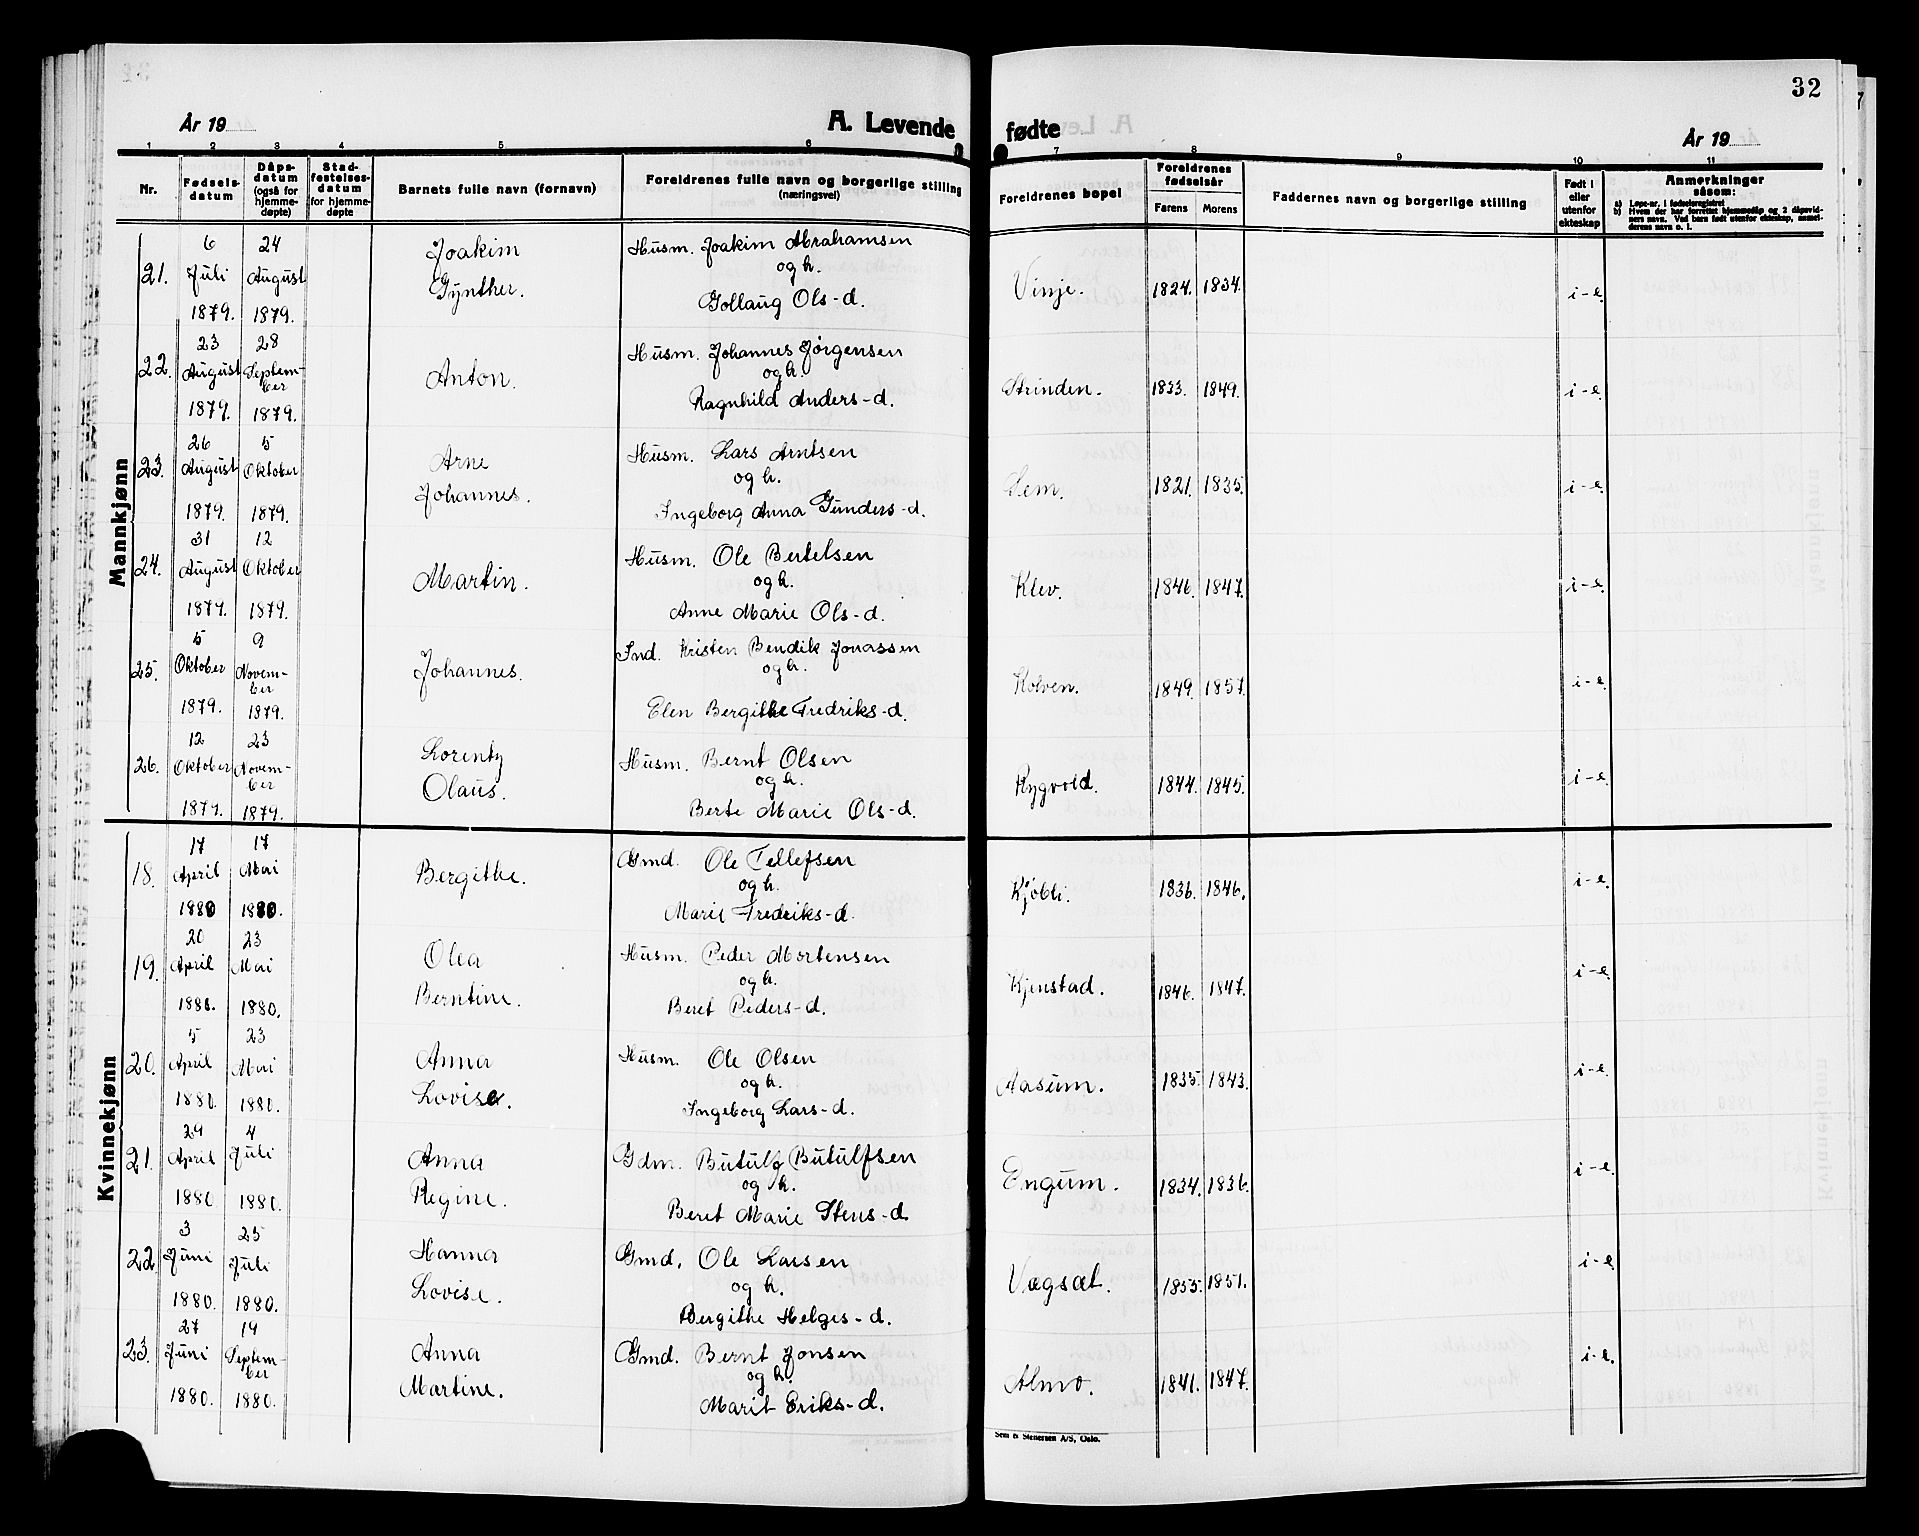 32
År 19
A. Levende
fødte
År 19
1 2 3 4 5 6 7 8 9 10 11
Nr.
Fødsels-
datum
Dåps-
datum
(også for
hjemme-
døpte)
Stad-
festelses-
datum
for hjemme-
døpte
Barnets fulle navn (fornavn)
Foreldrenes fulle navn og borgerlige stilling
(næringsvei)
Foreldrenes bopel
Foreldrenes
fødselsår
Farens Morens
Faddernes navn og borgerlige stilling
Født i
eller
utenfor
ekteskap
Anmerkninger
såsom:
a) Løpe-nr. i fødselsregistret
b) Hvem der har forrettet hjemmedåp og 2 dåpsvid-
ners navn. Ved barn født utenfor ekteskap, anmel-
derens navn o. l.
Mannkjønn
6 24 Joakim Husm. Joakim Abrahamsen
21. Juli August og h. Vinje. 1824. 1834. i-e.
Gynther. Gollaug Ols-d.
1879. 1879.
23 28 Husm. Johannes Jørgensen
22. August Septem-
ber Anton. og h. Strinden. 1833. 1849. i-e.
1879. 1879. Ragnhild Anders-d.
26 5 Arne Husm. Lars Arntsen
23. August Oktober og h. Sem. 1821. 1835. i-e.
Johannes.
1879. 1879. Ingeborg Anna Gunders-d.
31 12 Husm. Ole Bertelsen
24. August Oktober Martin. og h. Klev. 1846. 1847. i-e.
1879. 1879. Anne Marie Ols-d.
5 9 Ind. Kristen Bendik Jonassen
25. Oktober Novem-
ber Johannes. og h. Kolven. 1849. 1857. i-e.
1879. 1879. Elen Bergithe Fredriks-d.
12 23 Lorentz Husm. Bernt Olsen
26. Oktober Novem-
ber og h. Rygvold. 1844. 1845. i-e.
Olaus.
1879. 1879. Berte Marie Ols-d.
Kvinnekjønn
17 17 Gmd. Ole Tellefsen
18. April Mai Bergithe. og h. Kjøbli. 1836. 1846. i-e.
1880 1880. Marie Fredriks-d.
20 23 Olea Husm. Peder Mortensen
19. April Mai og h. Kjenstad. 1846. 1847. i-e.
Berntine.
1880. 1880. Beret Peders-d.
5 23 Anna Husm. Ole Olsen
20. April Mai og h. Aasum. 1835. 1843. i-e.
Lovise.
1880. 1880. Ingeborg Lars-d.
29 4 Anna Gdm. Butulf Butulfsen
21. April Juli og h. Engum. 1834. 1836. i-e.
Regine.
1880 1880. Beret Marie Stens-d
3 25 Hanna Gmd. Ole Larsen
22. Juni Juli og h. Vægsæt. 1855. 1851. i-e.
Lovise.
1880. 1880. Bergithe Helges-d.
27 19 Anna Gmd. Bernt Jonsen
23. Juni Septem-
ber og h. Almo. 1841. 1847. i-e.
Martine.
1880. 1880. Marit Eriks-d.
Sem & Stenersen A/S, Oslo.